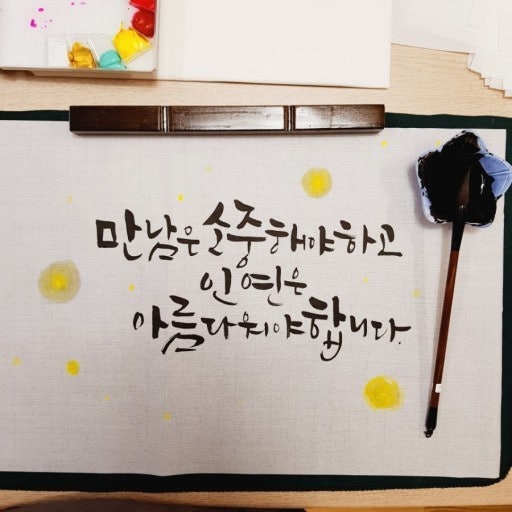 만남은 소중해야하고
인연은
아름다워야합니다.